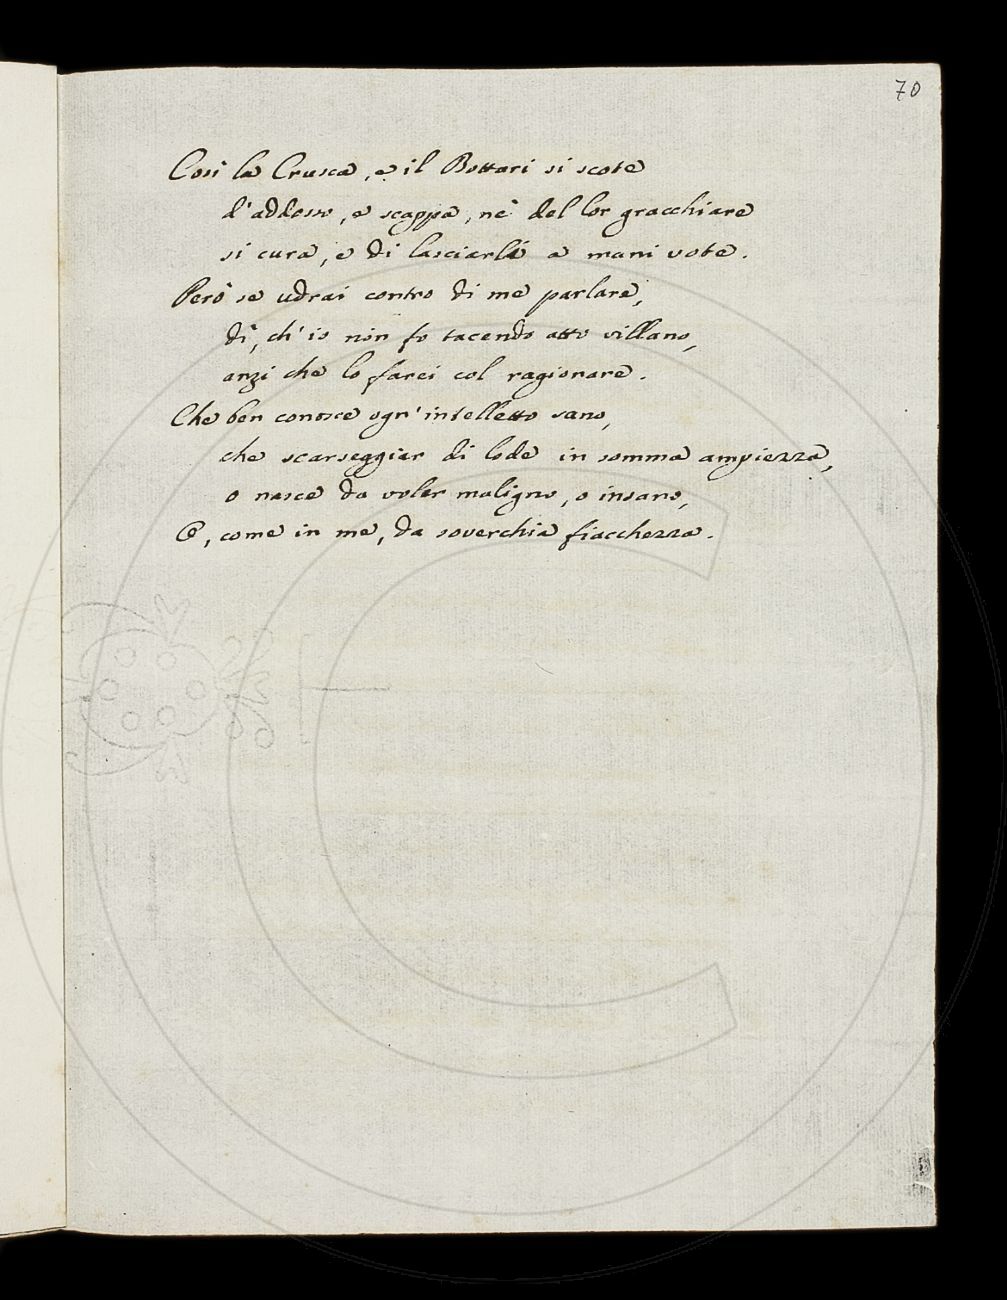 70
Così la Crusca, e il Bottari si scote
d'addosso, e scappa, nè del lor gracchiare
si cura, e di lasciarli a mani vote.
Però se udrai contro di me parlare,
dì, ch'io non fo tacendo atto villano,
anzi che lo farei col ragionare.
Che ben conosce ogn'intelletto sano,
che scarseggiar di lode in somma ampiezza,
o nasce da voler maligno, o insano,
O, come in me, da soverchia fiacchezza.